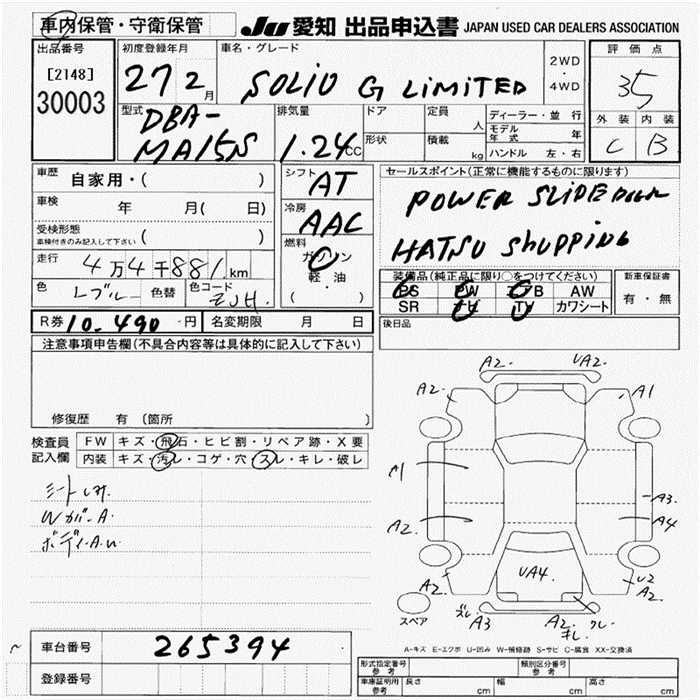 車内保管・守衛保管 JU 愛知 出品申込書 JAPAN USED CAR DEALERS ASSOCIATION
出品番号 初度登録年月 車名・グレード 評価点
[2148] 27 2 月 SOLIO G LIMITED 2WD ・ 4WD 35
30003 型式 排気量 ドア 定員 人 ディーラー・並行 外装 内装
DBA- モデル年式 年 C B
MA15S 1.24 CC 形状 積載 kg ハンドル 左・右
車歴 自家用・( ) シフト AT セールスポイント(正常に機能するものに限ります)
車検 年 月( 日) 冷房 AAC POWER SLIDE DOOR
受検形態 ( )
車検付きのみ記入して下さい
燃料 ガソリン HATSU SHUPPING
走行 4万4千881 km 軽・油 装備品(純正品に限り○をつけてください) 新車保証書
( ) PS PW AB AW 有・無
色 レブルー 色替 色コード ZJH SR ナビ TV カワシート
R券 10.490 円 名変期限 月 日 後日品
注意事項申告欄(不具合内容等は具体的に記入して下さい)
A2. UA2.
A2. A1
修復歴 有 〔箇所 〕
検査員 FW キズ・飛石・ヒビ割・リペア跡・X要
記入欄 内装 キズ・汚レ・コゲ・穴・スレ・キレ・破レ
シートしみ.
WカバーA
ボディーA.u
A3
A2. A4
UA4.
A2. U2
A2.
スペア A3 A2.
A-キズ E-エクボ U-凹み W-補修跡 S-サビ C-腐食 XX-交換済
車台番号 265394
登録番号
形式指定番号 参考 類別区分番号 参考
車庫証明用 参考 長さ cm 幅 cm 高さ cm